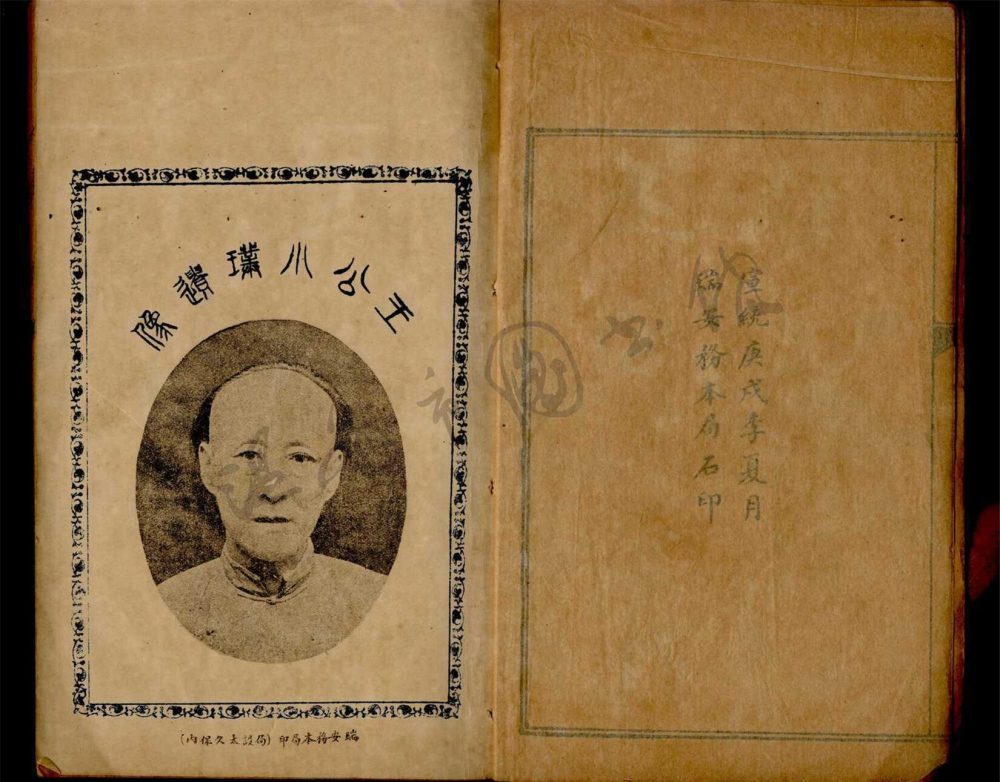 宣統庚戌季夏月
瑞安務本局石印
王公小璞遺像
瑞安務本局印（局設太久保內）